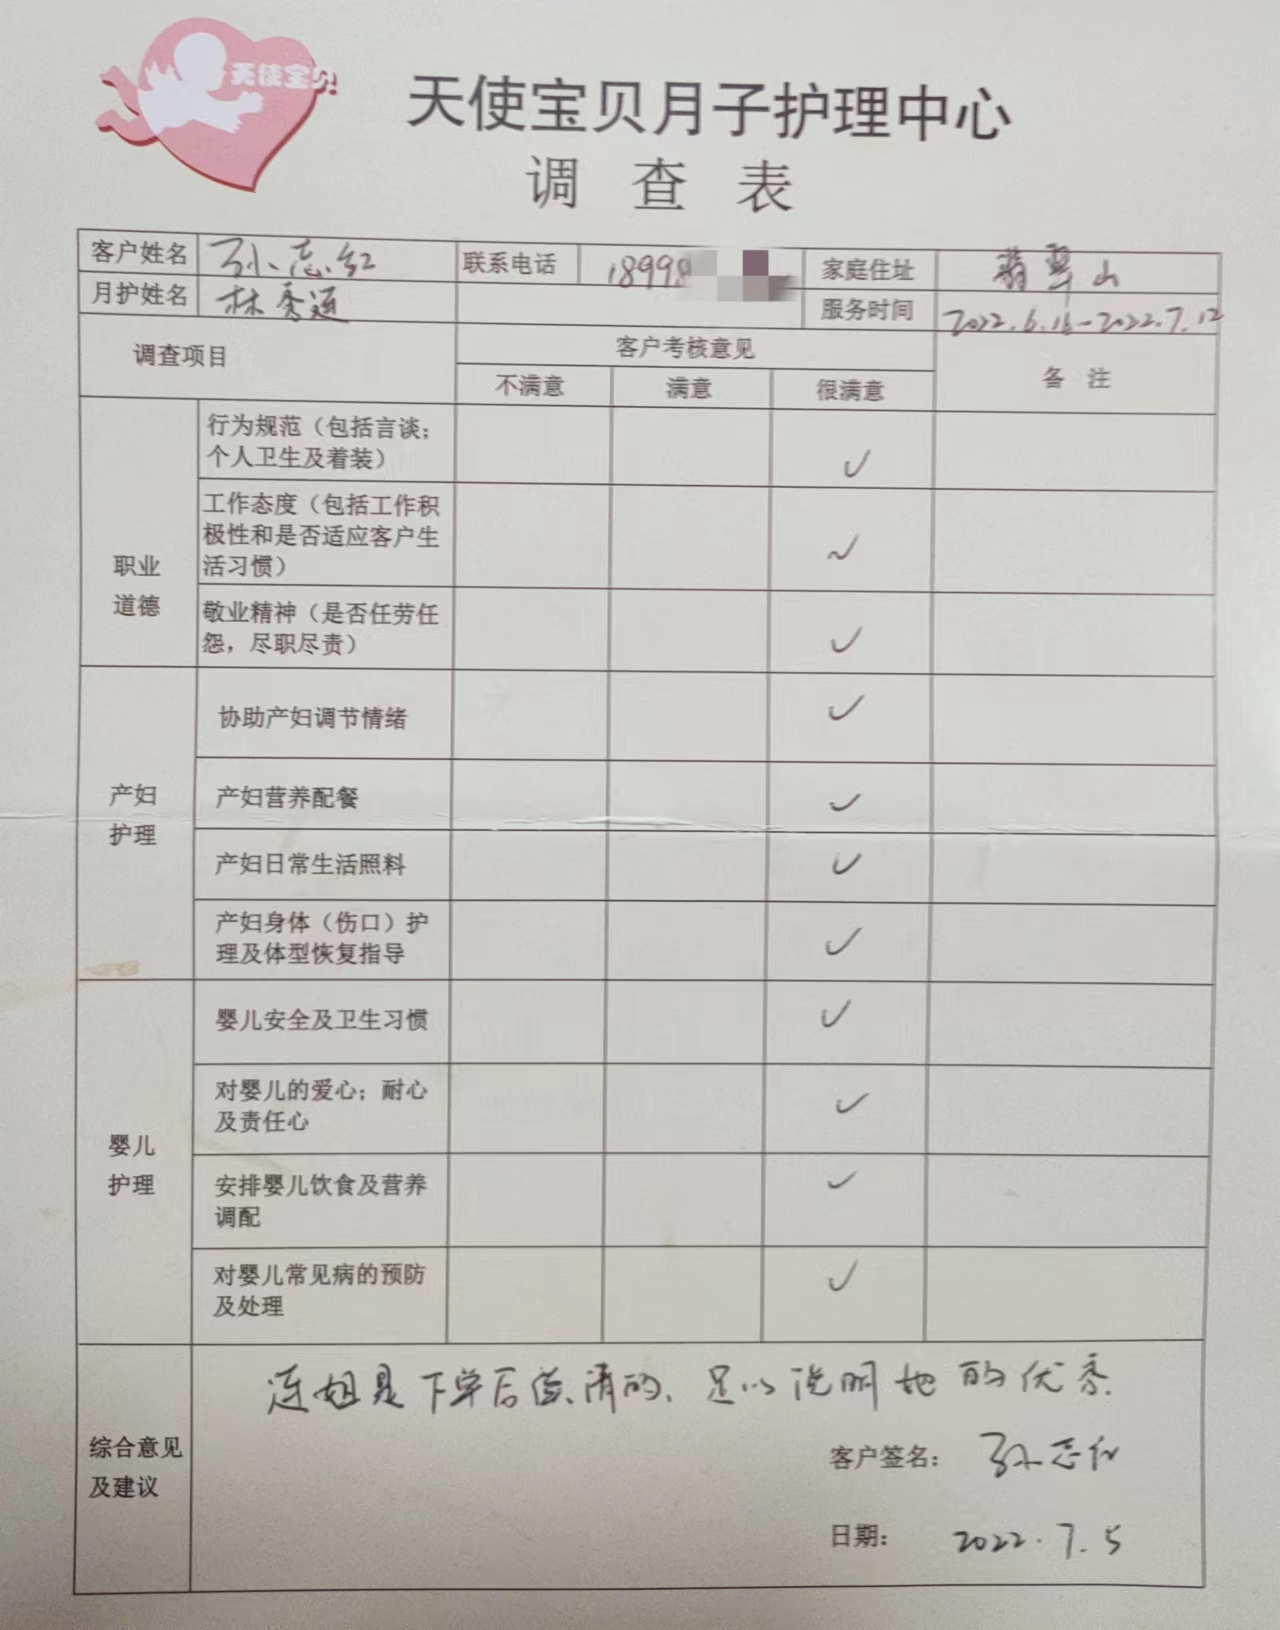 天使宝贝
天使宝贝月子护理中心
调查表
客户姓名 孙志红 联系电话 18998 家庭住址 翡翠山
月护姓名 林秀莲 服务时间 2022.6.16-2022.7.12
调查项目 客户考核意见 备注
不满意 满意 很满意
职业
道德
行为规范（包括言谈；
个人卫生及着装） ✓
工作态度（包括工作积
极性和是否适应客户生
活习惯） ✓
敬业精神（是否任劳任
怨，尽职尽责） ✓
产妇
护理
协助产妇调节情绪 ✓
产妇营养配餐 ✓
产妇日常生活照料 ✓
产妇身体（伤口）护
理及体型恢复指导 ✓
婴儿
护理
婴儿安全及卫生习惯 ✓
对婴儿的爱心；耐心
及责任心 ✓
安排婴儿饮食及营养
调配 ✓
对婴儿常见病的预防
及处理 ✓
综合意见
及建议
连姐是下单后 请的，足以说明她的优秀.
客户签名： 孙志红
日期： 2022.7.5